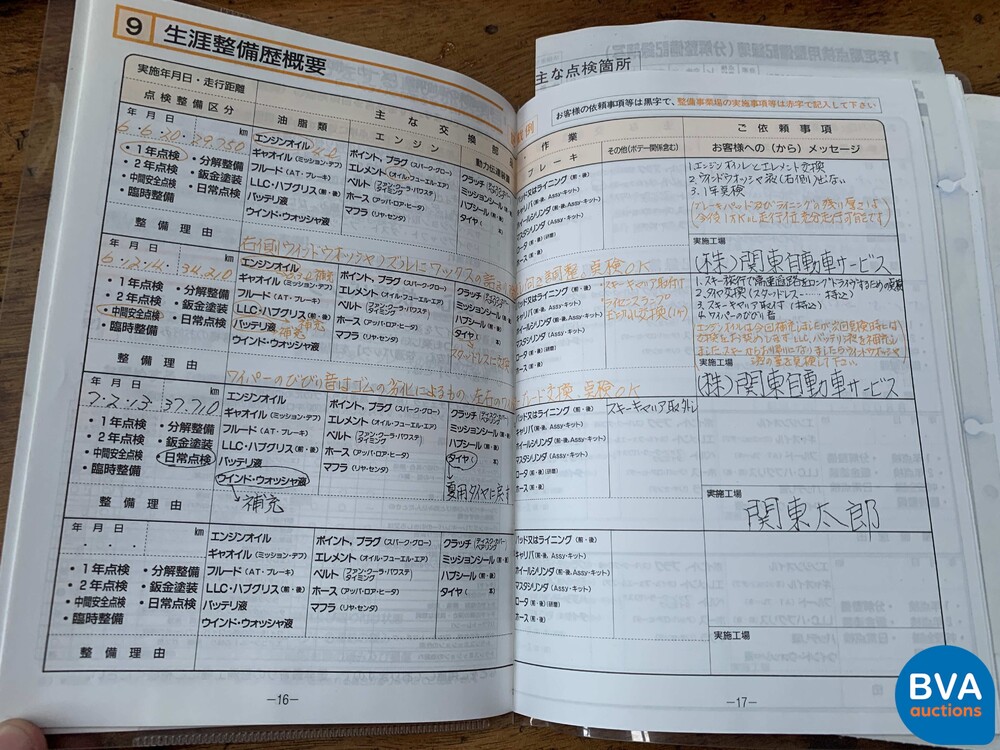 9 生涯整備歴概要
実施年月日・走行距離
点検整備区分
主な交換部品
油脂類
エンジン
動力伝達装置
年 月 日 km
6.6.30. 29,750
・1年点検
・2年点検
・中間安全点検
・臨時整備
・分解整備
・鈑金塗装
・日常点検
エンジンオイル 4.0
ギャオイル(ミッション・デフ)
フルード(AT・ブレーキ)
LLC・ハブグリス(前・後)
バッテリ液
ウインド・ウォッシャ液
ポイント、プラグ(スパーク・グロー)
エレメント(オイル・フューエル・エア)
ベルト(ファン・クーラ・パワステ タイミング)
ホース(アッパ・ロア・ヒータ)
マフラ(リヤ・センタ)
クラッチ(ディスク・カバー ベアリング)
ミッションシール(前・後)
ハブシール(前・後)
タイヤ( 本)
整備理由
右側ウィンドウオッシャノズルにワックスの
年 月 日 km
6.12.14. 34,210
・1年点検
・2年点検
・中間安全点検
・臨時整備
・分解整備
・鈑金塗装
・日常点検
エンジンオイル 補充
ギャオイル(ミッション・デフ)
フルード(AT・ブレーキ)
LLC・ハブグリス(前・後) 補充
バッテリ液 補充
ウインド・ウォッシャ液
ポイント、プラグ(スパーク・グロー)
エレメント(オイル・フューエル・エア)
ベルト(ファン・クーラ・パワステ タイミング)
ホース(アッパ・ロア・ヒータ)
マフラ(リヤ・センタ)
クラッチ(ディスク・カバー ベアリング)
ミッションシール(前・後)
ハブシール(前・後)
タイヤ( 本)
スタッドレスに交換
整備理由
ワイパーのびびり音はゴムの劣化によるもの、左右の
年 月 日 km
7.2.13 37,710
・1年点検
・2年点検
・中間安全点検
・臨時整備
・分解整備
・鈑金塗装
・日常点検
エンジンオイル
ギャオイル(ミッション・デフ)
フルード(AT・ブレーキ)
LLC・ハブグリス(前・後)
バッテリ液
ウインド・ウォッシャ液
補充
ポイント、プラグ(スパーク・グロー)
エレメント(オイル・フューエル・エア)
ベルト(ファン・クーラ・パワステ タイミング)
ホース(アッパ・ロア・ヒータ)
マフラ(リヤ・センタ)
クラッチ(ディスク・カバー ベアリング)
ミッションシール(前・後)
ハブシール(前・後)
タイヤ( 本)
夏用タイヤに戻す
整備理由
年 月 日 km
・1年点検
・2年点検
・中間安全点検
・臨時整備
・分解整備
・鈑金塗装
・日常点検
エンジンオイル
ギャオイル(ミッション・デフ)
フルード(AT・ブレーキ)
LLC・ハブグリス(前・後)
バッテリ液
ウインド・ウォッシャ液
ポイント、プラグ(スパーク・グロー)
エレメント(オイル・フューエル・エア)
ベルト(ファン・クーラ・パワステ タイミング)
ホース(アッパ・ロア・ヒータ)
マフラ(リヤ・センタ)
クラッチ(ディスク・カバー ベアリング)
ミッションシール(前・後)
ハブシール(前・後)
タイヤ( 本)
整備理由
—16—
主な点検箇所
お客様の依頼事項等は黒字で、整備事業場の実施事項等は赤字で記入して下さい
例
作業
ご依頼事項
ブレーキ
その他(ボデー関係含む)
お客様への(から)メッセージ
パッド又はライニング(前・後)
キャリパ(前・後、Assy・キット)
ホイールシリンダ(Assy・キット)
マスタシリンダ(Assy・キット)
ロータ(前・後)(研磨)
ホース(前・後)
1.エンジンオイルとエレメント交換
2.ウインドウォッシャ液(右側)出ない
3.1年点検
(ブレーキパッド及びライニングの残り厚さは
今後1万km走行位充分走行可能です)
実施工場
(株)関東自動車サービス
向き調整、点検OK
パッド又はライニング(前・後)
キャリパ(前・後、Assy・キット)
ホイールシリンダ(Assy・キット)
マスタシリンダ(Assy・キット)
ロータ(前・後)(研磨)
ホース(前・後)
スキーキャリア取付け
ライセンスランプ
1.スキー旅行で高速道路をロングドライブするため点検
2.タイヤ交換(スタッドレス……持込)
3.スキーキャリア取付け(持込)
4.ワイパーのびびり音
エンジンオイルは今回補充しましたが次回点検時には
交換をお勧めします LLC、バッテリ液を補充し
ました
実施工場
(株)関東自動車サービス
レード交換、点検OK
パッド又はライニング(前・後)
キャリパ(前・後、Assy・キット)
ホイールシリンダ(Assy・キット)
マスタシリンダ(Assy・キット)
ロータ(前・後)(研磨)
ホース(前・後)
スキーキャリア取外し
実施工場
関東太郎
パッド又はライニング(前・後)
キャリパ(前・後、Assy・キット)
ホイールシリンダ(Assy・キット)
マスタシリンダ(Assy・キット)
ロータ(前・後)(研磨)
ホース(前・後)
実施工場
—17—
BVA
auctions